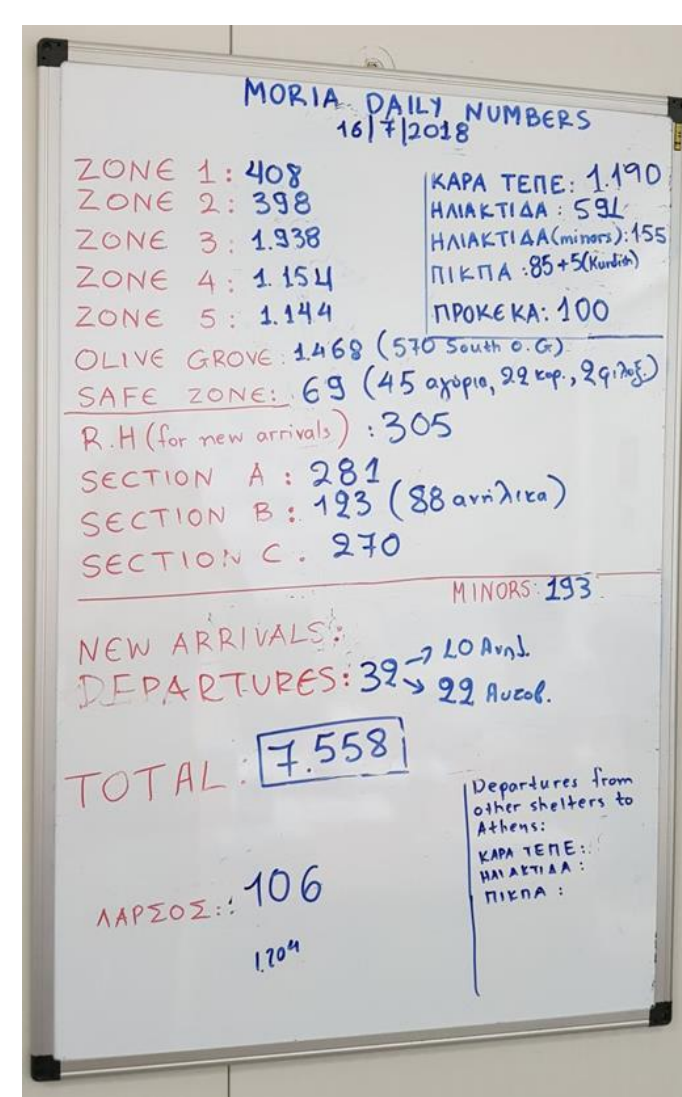 MORIA DAILY NUMBERS
16/7/2018
ZONE 1: 408
ZONE 2: 398
ZONE 3: 1.938
ZONE 4: 1.154
ZONE 5: 1.144
ΚΑΡΑ ΤΕΠΕ: 1.190
ΗΛΙΑΚΤΙΔΑ: 591
ΗΛΙΑΚΤΙΔΑ(minors): 155
ΠΙΚΠΑ: 85+5(Kurdish)
ΠΡΟΚΕΚΑ: 100
OLIVE GROVE: 1.468 (570 South O.G)
SAFE ZONE: 69 (45 αγόρια, 22 κορ., 2 φιλοξ.)
R.H (for new arrivals): 305
SECTION A: 281
SECTION B: 123 (88 ανήλικα)
SECTION C. 270
MINORS: 193
NEW ARRIVALS:
DEPARTURES: 32 → 10 Ανηλ.
→ 22 Αυτοβ.
TOTAL: 7.558
Departures from
other shelters to
Athens:
ΚΑΡΑ ΤΕΠΕ:
ΗΛΙΑΚΤΙΔΑ:
ΠΙΚΠΑ:
ΛΑΡΣΟΣ:: 106
1.204